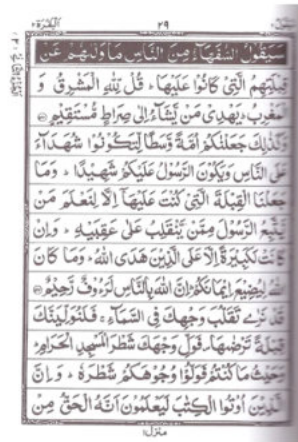 البقرة ٢
٢٩
سَيَقُوْلُ السُّفَهَآءُ مِنَ النَّاسِ مَا وَلّٰىهُمْ عَنْ
قِبْلَتِهِمُ الَّتِیْ كَانُوْا عَلَیْهَا ؕ قُلْ لِّلّٰهِ الْمَشْرِقُ وَ
الْمَغْرِبُ ؕ یَهْدِیْ مَنْ یَّشَآءُ اِلٰی صِرَاطٍ مُّسْتَقِیْمٍ
وَكَذٰلِكَ جَعَلْنٰكُمْ اُمَّةً وَّسَطًا لِّتَكُوْنُوْا شُهَدَآءَ
عَلَی النَّاسِ وَیَكُوْنَ الرَّسُوْلُ عَلَیْكُمْ شَهِیْدًا ؕ وَمَا
جَعَلْنَا الْقِبْلَةَ الَّتِیْ كُنْتَ عَلَیْهَاۤ اِلَّا لِنَعْلَمَ مَنْ
یَّتَّبِعُ الرَّسُوْلَ مِمَّنْ یَّنْقَلِبُ عَلٰی عَقِبَیْهِ ؕ وَاِنْ
كَانَتْ لَكَبِیْرَةً اِلَّا عَلَی الَّذِیْنَ هَدَی اللّٰهُ ؕ وَمَا كَانَ
اللّٰهُ لِیُضِیْعَ اِیْمَانَكُمْ ؕ اِنَّ اللّٰهَ بِالنَّاسِ لَرَءُوْفٌ رَّحِیْمٌ
قَدْ نَرٰی تَقَلُّبَ وَجْهِكَ فِی السَّمَآءِ ۚ فَلَنُوَلِّیَنَّكَ
قِبْلَةً تَرْضٰىهَا ۪ فَوَلِّ وَجْهَكَ شَطْرَ الْمَسْجِدِ الْحَرَامِ ؕ
وَحَیْثُ مَا كُنْتُمْ فَوَلُّوْا وُجُوْهَكُمْ شَطْرَهٗ ؕ وَاِنَّ
الَّذِیْنَ اُوْتُوا الْكِتٰبَ لَیَعْلَمُوْنَ اَنَّهُ الْحَقُّ مِنْ
منزل ١